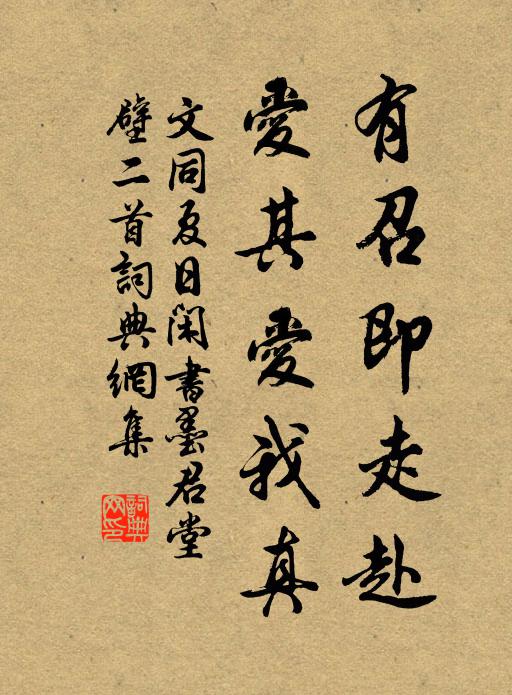 有召即走赴
愛其愛我真
文同夏日閑書墨君堂
壁二首詞典網集
詞典網印